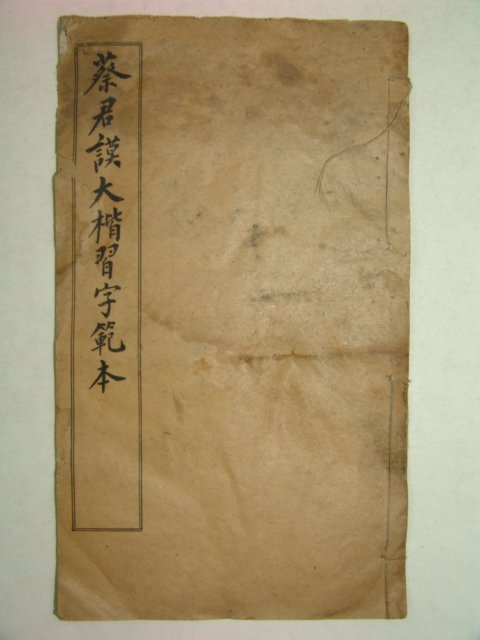 蔡君謨大楷習字範本